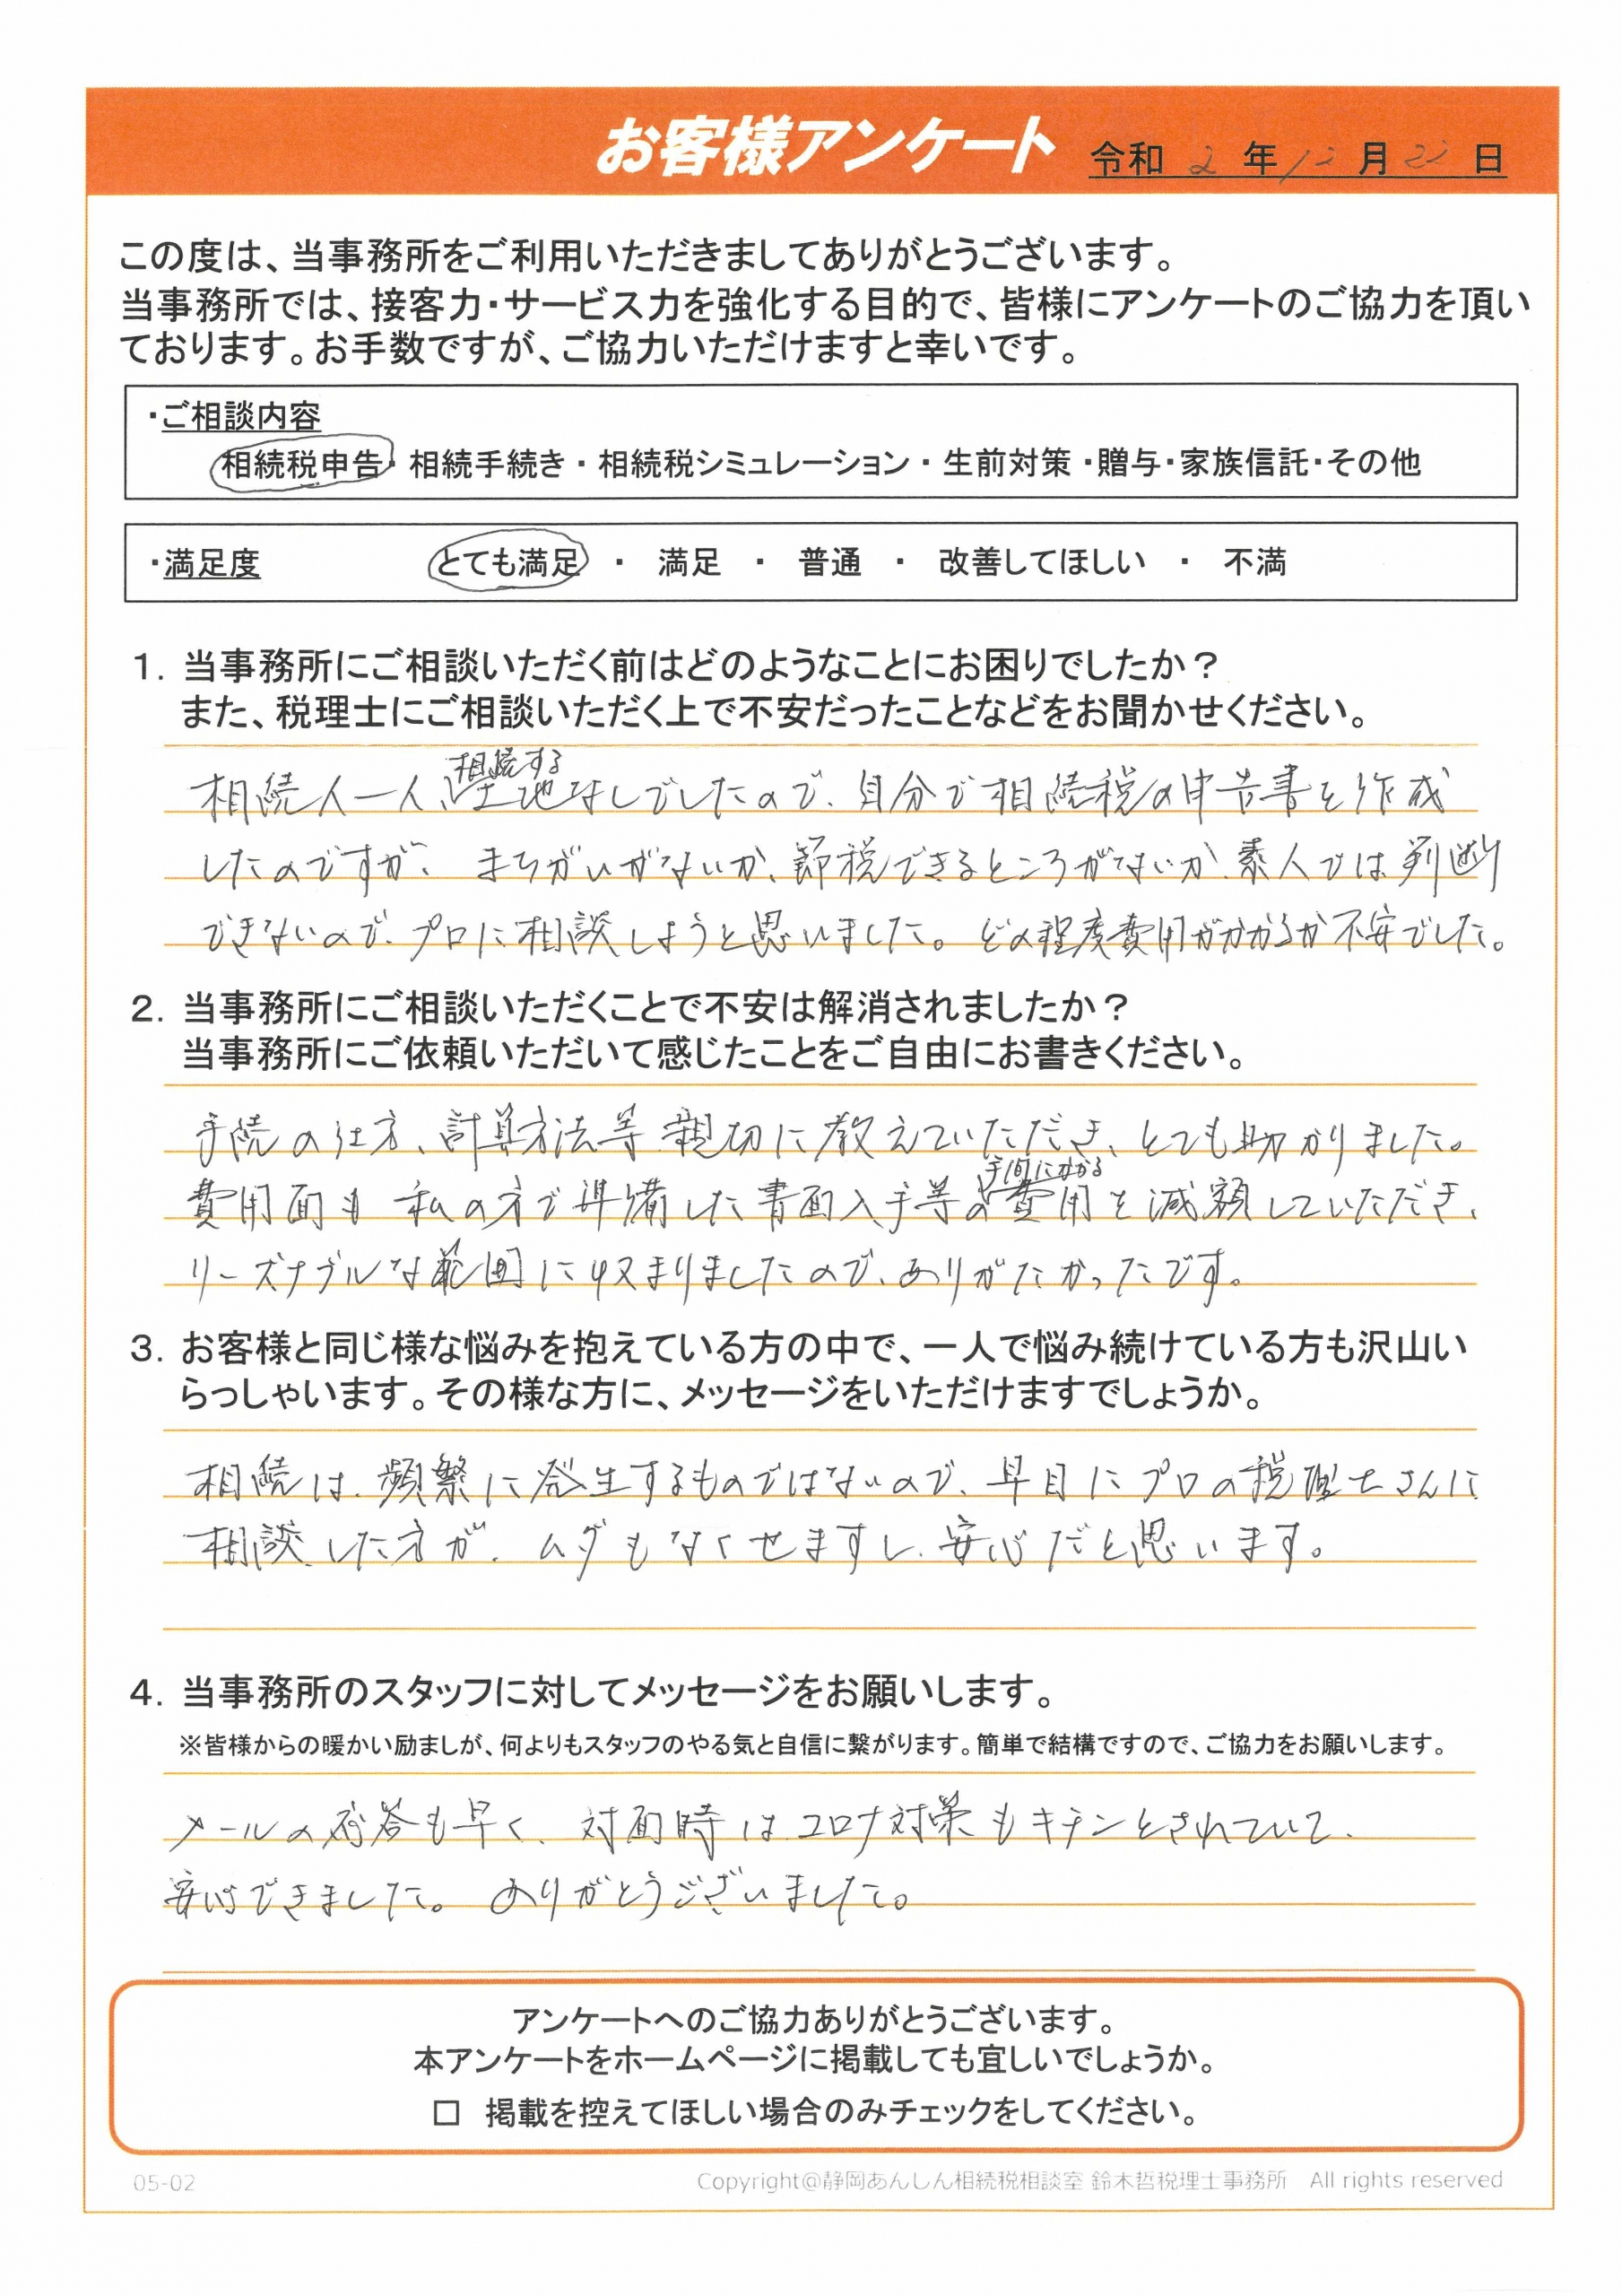 お客様アンケート 令和 2 年 12 月 22 日
この度は、当事務所をご利用いただきましてありがとうございます。
当事務所では、接客力・サービス力を強化する目的で、皆様にアンケートのご協力を頂い
ております。お手数ですが、ご協力いただけますと幸いです。
・ご相談内容
相続税申告・相続手続き・相続税シミュレーション・生前対策・贈与・家族信託・その他
・満足度 とても満足 ・ 満足 ・ 普通 ・ 改善してほしい ・ 不満
1. 当事務所にご相談いただく前はどのようなことにお困りでしたか？
また、税理士にご相談いただく上で不安だったことなどをお聞かせください。
相続人一人、相続する土地なしでしたので、自分で相続税の申告書を作成
したのですが、まちがいがないか、節税できるところがないか、素人では判断
できないので、プロに相談しようと思いました。どの程度費用がかかるか不安でした。
2. 当事務所にご相談いただくことで不安は解消されましたか？
当事務所にご依頼いただいて感じたことをご自由にお書きください。
手続の仕方、計算方法等親切に教えていただき、とても助かりました。
費用面も私の方で準備した書面入手等の手間にかかる費用を減額していただき、
リーズナブルな範囲に収まりましたので、ありがたかったです。
3. お客様と同じ様な悩みを抱えている方の中で、一人で悩み続けている方も沢山い
らっしゃいます。その様な方に、メッセージをいただけますでしょうか。
相続は、頻繁に発生するものではないので、早目にプロの税理士さんに
相談した方が、ムダもなくせますし、安心だと思います。
4. 当事務所のスタッフに対してメッセージをお願いします。
※皆様からの暖かい励ましが、何よりもスタッフのやる気と自信に繋がります。簡単で結構ですので、ご協力をお願いします。
メールの応答も早く、対面時はコロナ対策もキチンとされていて、
安心できました。ありがとうございました。
アンケートへのご協力ありがとうございます。
本アンケートをホームページに掲載しても宜しいでしょうか。
□ 掲載を控えてほしい場合のみチェックをしてください。
05-02 Copyright@静岡あんしん相続税相談室 鈴木哲税理士事務所 All rights reserved